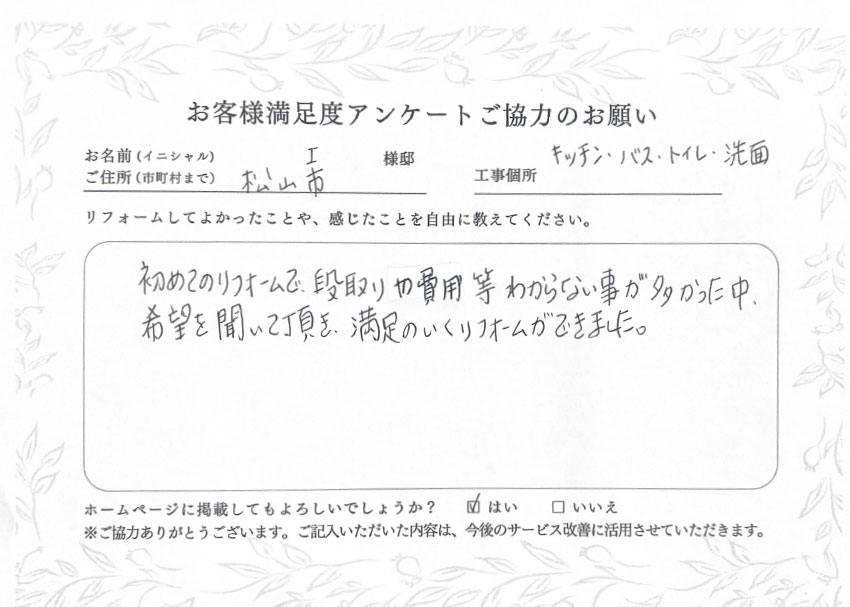 お客様満足度アンケートご協力のお願い
お名前(イニシャル) I 様邸
ご住所(市町村まで) 松山市
工事個所 キッチン・バス・トイレ・洗面
リフォームしてよかったことや、感じたことを自由に教えてください。
初めてのリフォームで、段取りや費用等わからない事が多かった中、
希望を聞いて頂き、満足のいくリフォームができました。
ホームページに掲載してもよろしいでしょうか? ☑はい □いいえ
※ご協力ありがとうございます。ご記入いただいた内容は、今後のサービス改善に活用させていただきます。